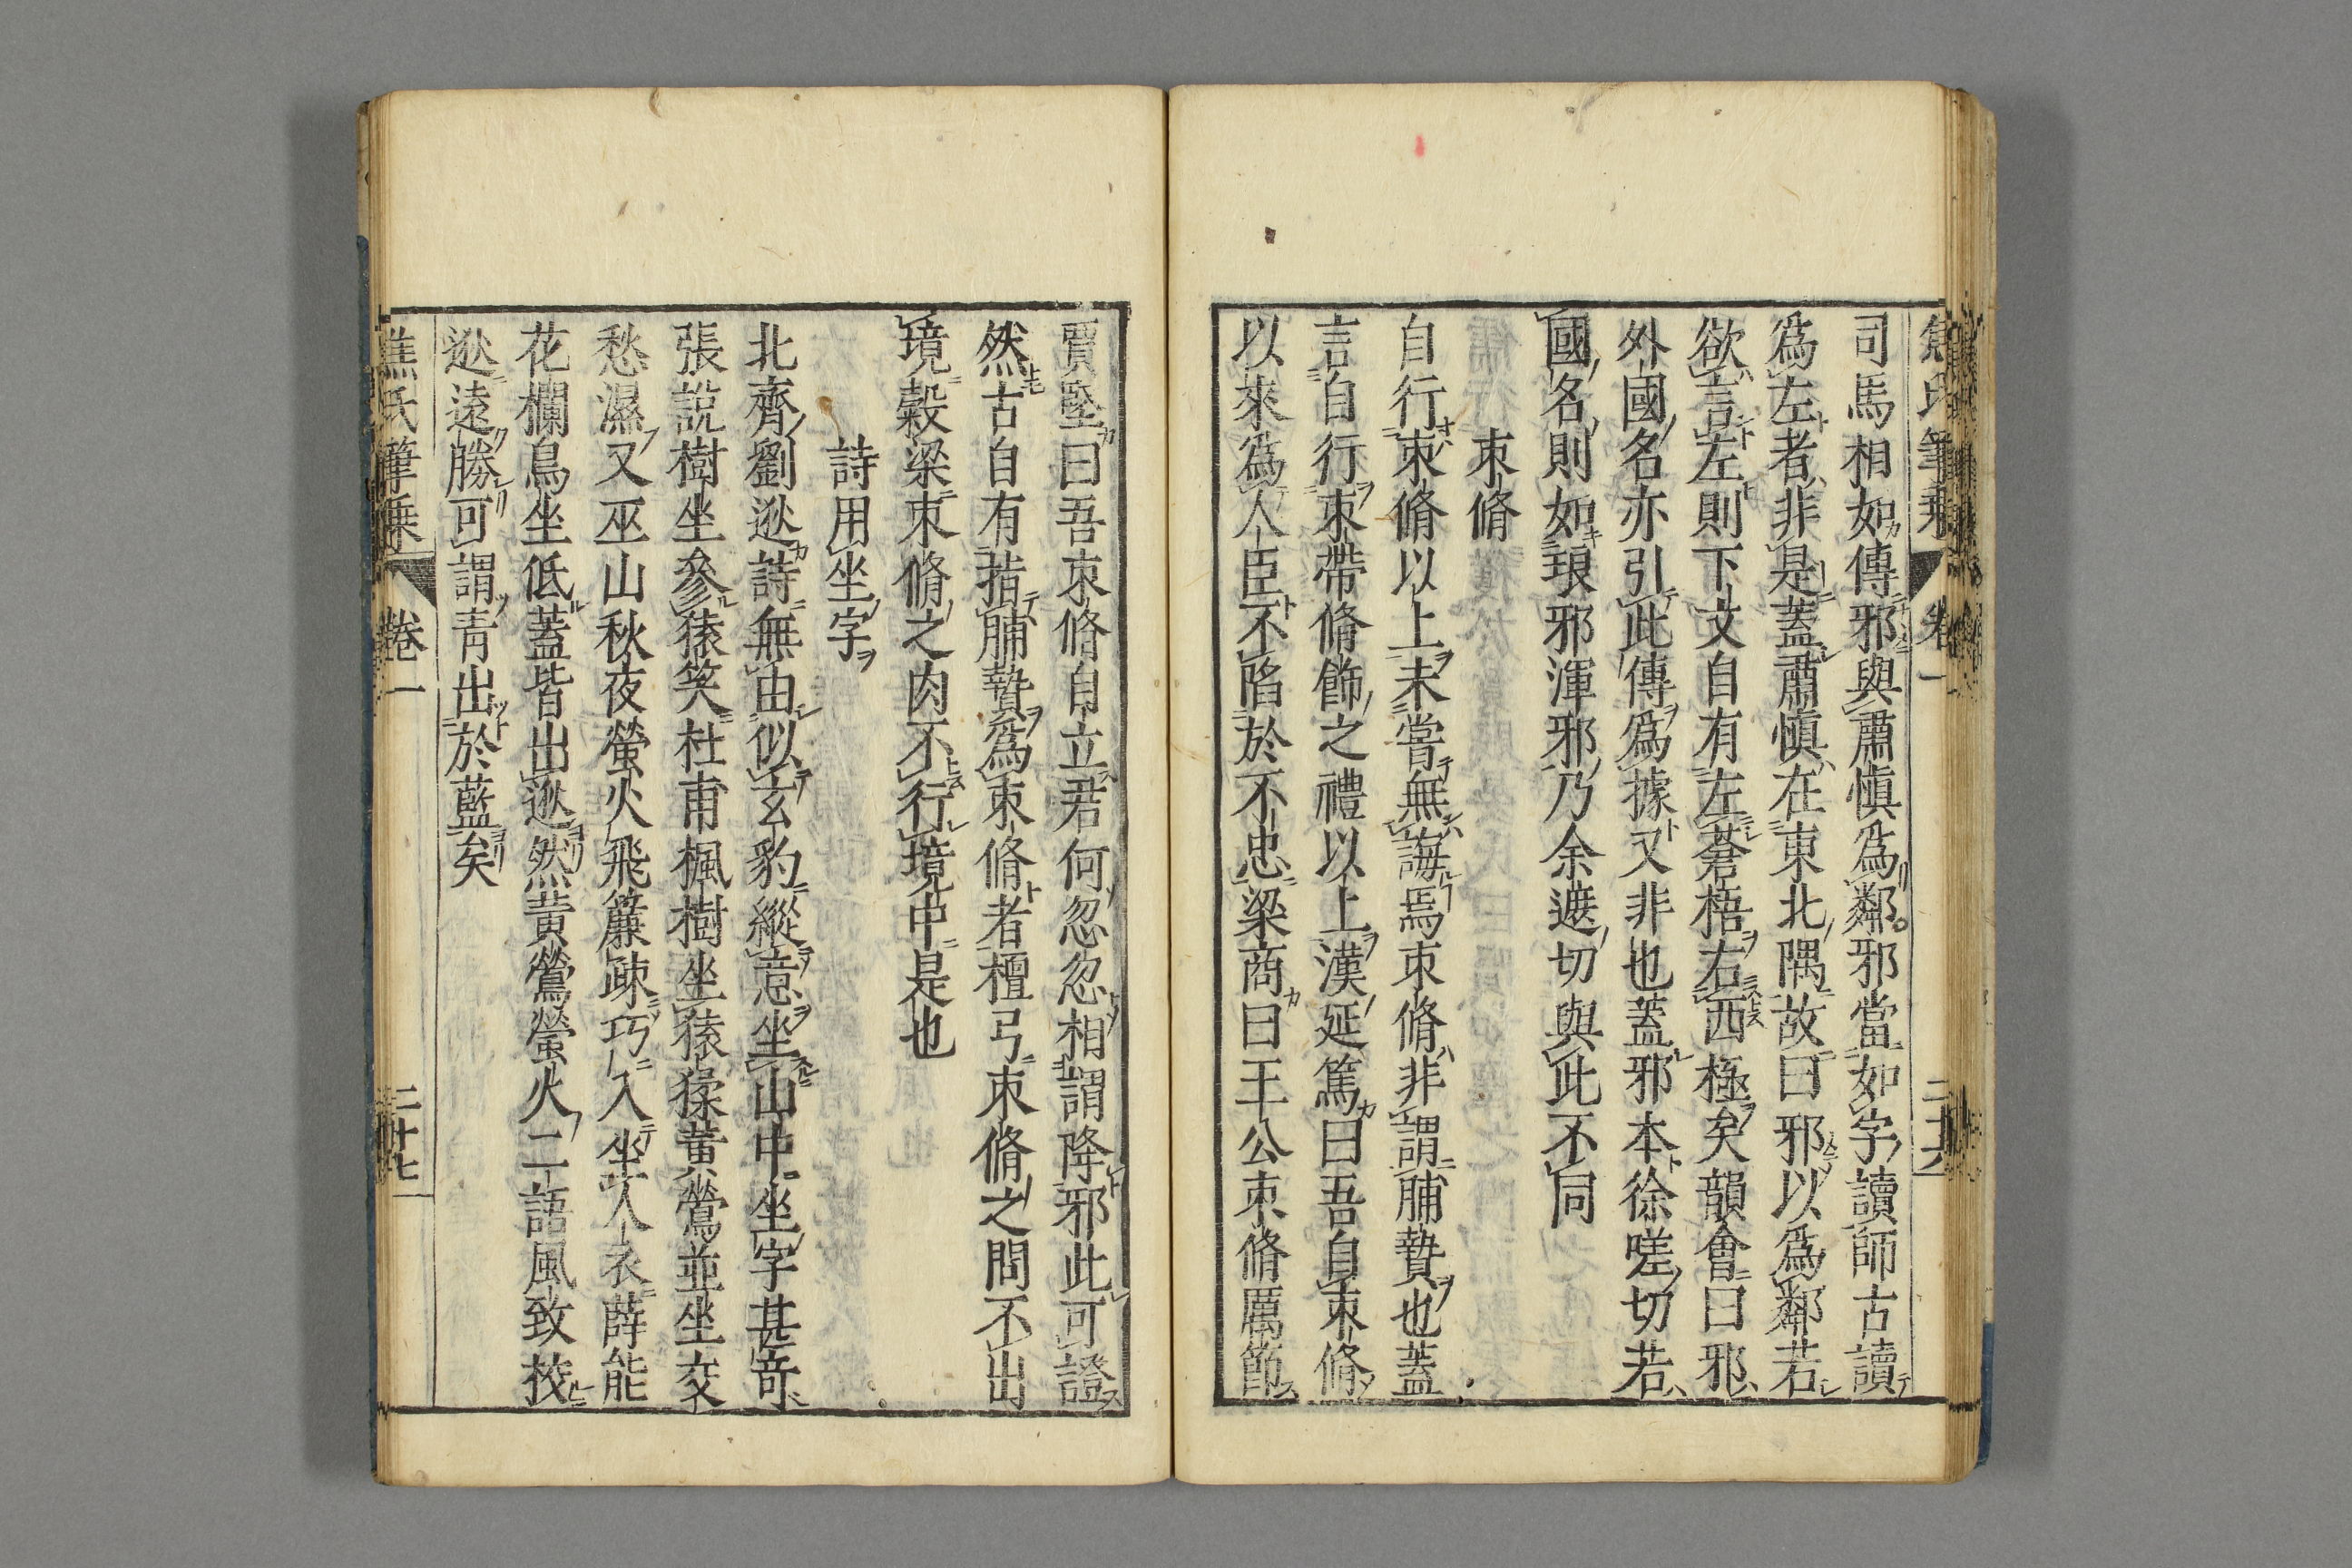 焦氏筆乘 卷一 二十六
司馬相如傳邪與肅愼爲鄰邪當如字讀師古讀
爲左者非是蓋肅愼在東北隅故曰邪以爲鄰若
欲言左則下文自有左蒼梧右西極矣韻會曰邪
外國名亦引此傳爲據又非也蓋邪本徐嗟切若
國名則如琅邪渾邪乃余遮切與此不同
束脩
自行束脩以上未嘗無誨焉束脩非謂脯贄也蓋
言自行束帶脩飾之禮以上漢延篤曰吾自束脩
以來爲人臣不陷於不忠梁商曰王公束脩厲節
賈堅曰吾束脩自立君何忽忽相謂降邪此可證
然古自有指脯贄爲束脩者檀弓束脩之問不出
境穀梁束脩之肉不行境中是也
詩用坐字
北齊劉逖詩無由似玄豹縱意坐山中坐字甚奇
張說樹坐參猿笑杜甫楓樹坐猿猱黃鶯並坐交
愁濕又巫山秋夜螢火飛簾疎巧入坐人衣薛能
花欄鳥坐低蓋皆出逖然黃鶯螢火二語風致挍
逖遠勝可謂青出於藍矣
焦氏筆乘 卷一 二十七